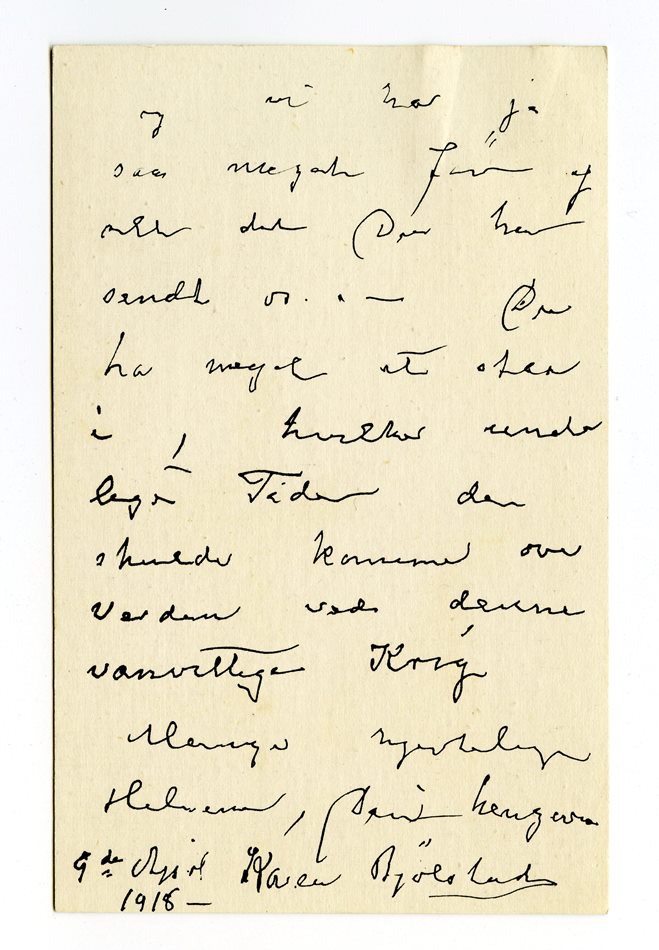 og vi har ja
saa meget før af
alt det De har
sendt os. . — De
ha meget at staa
i, hvilke under
lege Tider der
skulde komme over
Verden ved denne
vanvittige Krig
Mange hjertelige
Hilsener, Deres hengivne
9de April Karen Bjölstad
1918 —